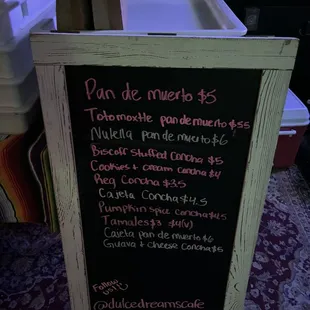 Pan de muerto $5
Totomoxtle pan de muerto $5.5
Nutella pan de muerto $6
Biscoff Stuffed Concha $5
Cookies + cream concha $4
Reg Concha $3.5
Cajeta Concha $4.5
Pumpkin spice concha $4.5
Tamales $3 $4(v)
Cajeta pan de muerto $6
Guava + Cheese Concha $5
Follow
us!!
@dulcedreamscafe